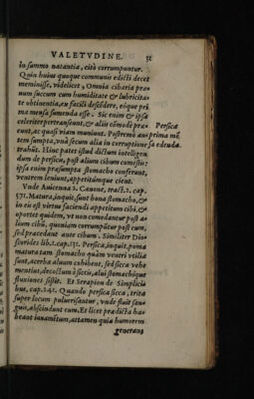 VALETVDINE. 51
in summo natantia, cito corrumpuntur.
Quin huius quoque communis edicti decet
meminisse, videlicet, Omnia cibaria pra-
uum succum cum humiditate & lubricita-
te obtinentia, eu facili descēdere, eóque pri
ma mensa sumenda esse. Sic enim & ipsa
celeriter pertranseunt, & aliis cōmodè præ-
eunt, ac quasi viam muniunt. Postremò aut
tem sumpta, vnà secum alia in corruptione
trahūt. Hinc patet istud dictum intelligen
dum de persicis, post alium cibum comestis:
ipsa enim præsumpta stomacho conferunt,
ventrem leniunt, appetitúmque cient.
Persicæ
prima mē
sa edenda
Vnde Auicenna 2. Canone, tract. 2. cap.
571. Matura, inquit, sunt bona stomacho, &
in eis est virtus faciendi appetitum cibi, &
oportet quidem, vt non comedantur post a-
lium cibū, quoniam corrumpūtur post eum,
sed præcedant ante cibum. Similiter Dio-
scorides lib. 1. cap. 131. Persica, inquit, poma
matura tam stomacho quàm ventri vtilia
sunt, acerba aluum cohibent, sed sicca vehe
mentius, decoctum è siccis, alui stomachique
fluxiones sistit. Et Serapion de Simplicib
bus, cap. 141. Quando persica sicca, trita
super locum puluerisantur, vnde fluit san-
guis, abscindunt eum. Et licet prædicta ha-
beant iuuamētum, attamen quia humorem
generans